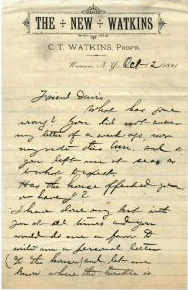 THE NEW WATKINS
C. T. WATKINS, PROP'R.
Warsaw, N. Y. Oct 12 1891
Friend Davis,
What has gone
wrong? You did not answer
my letter of a week ago, nor
the and
you left me at sea as
to what to expect.
Has the house offended you
or have I?
I have done my best with
you at all times and you
would do me a favor to
write me a personal letter
(To the house) and let me
know where the trouble is